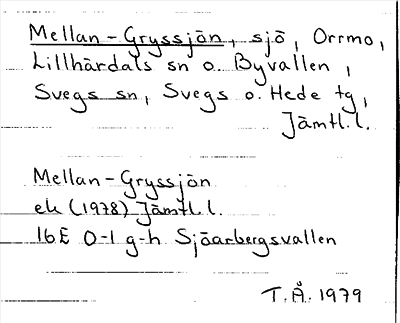 Mellan-Gryssjön, sjö, Orrmo,
Lillhärdals sn o. Byvallen,
Svegs sn, Svegs o. Hede tg,
Jämtl. l.
Mellan-Gryssjön
ek (1978) Jämtl. l.
16E 0-1 g-h Sjöarbergsvallen
T.Å. 1979